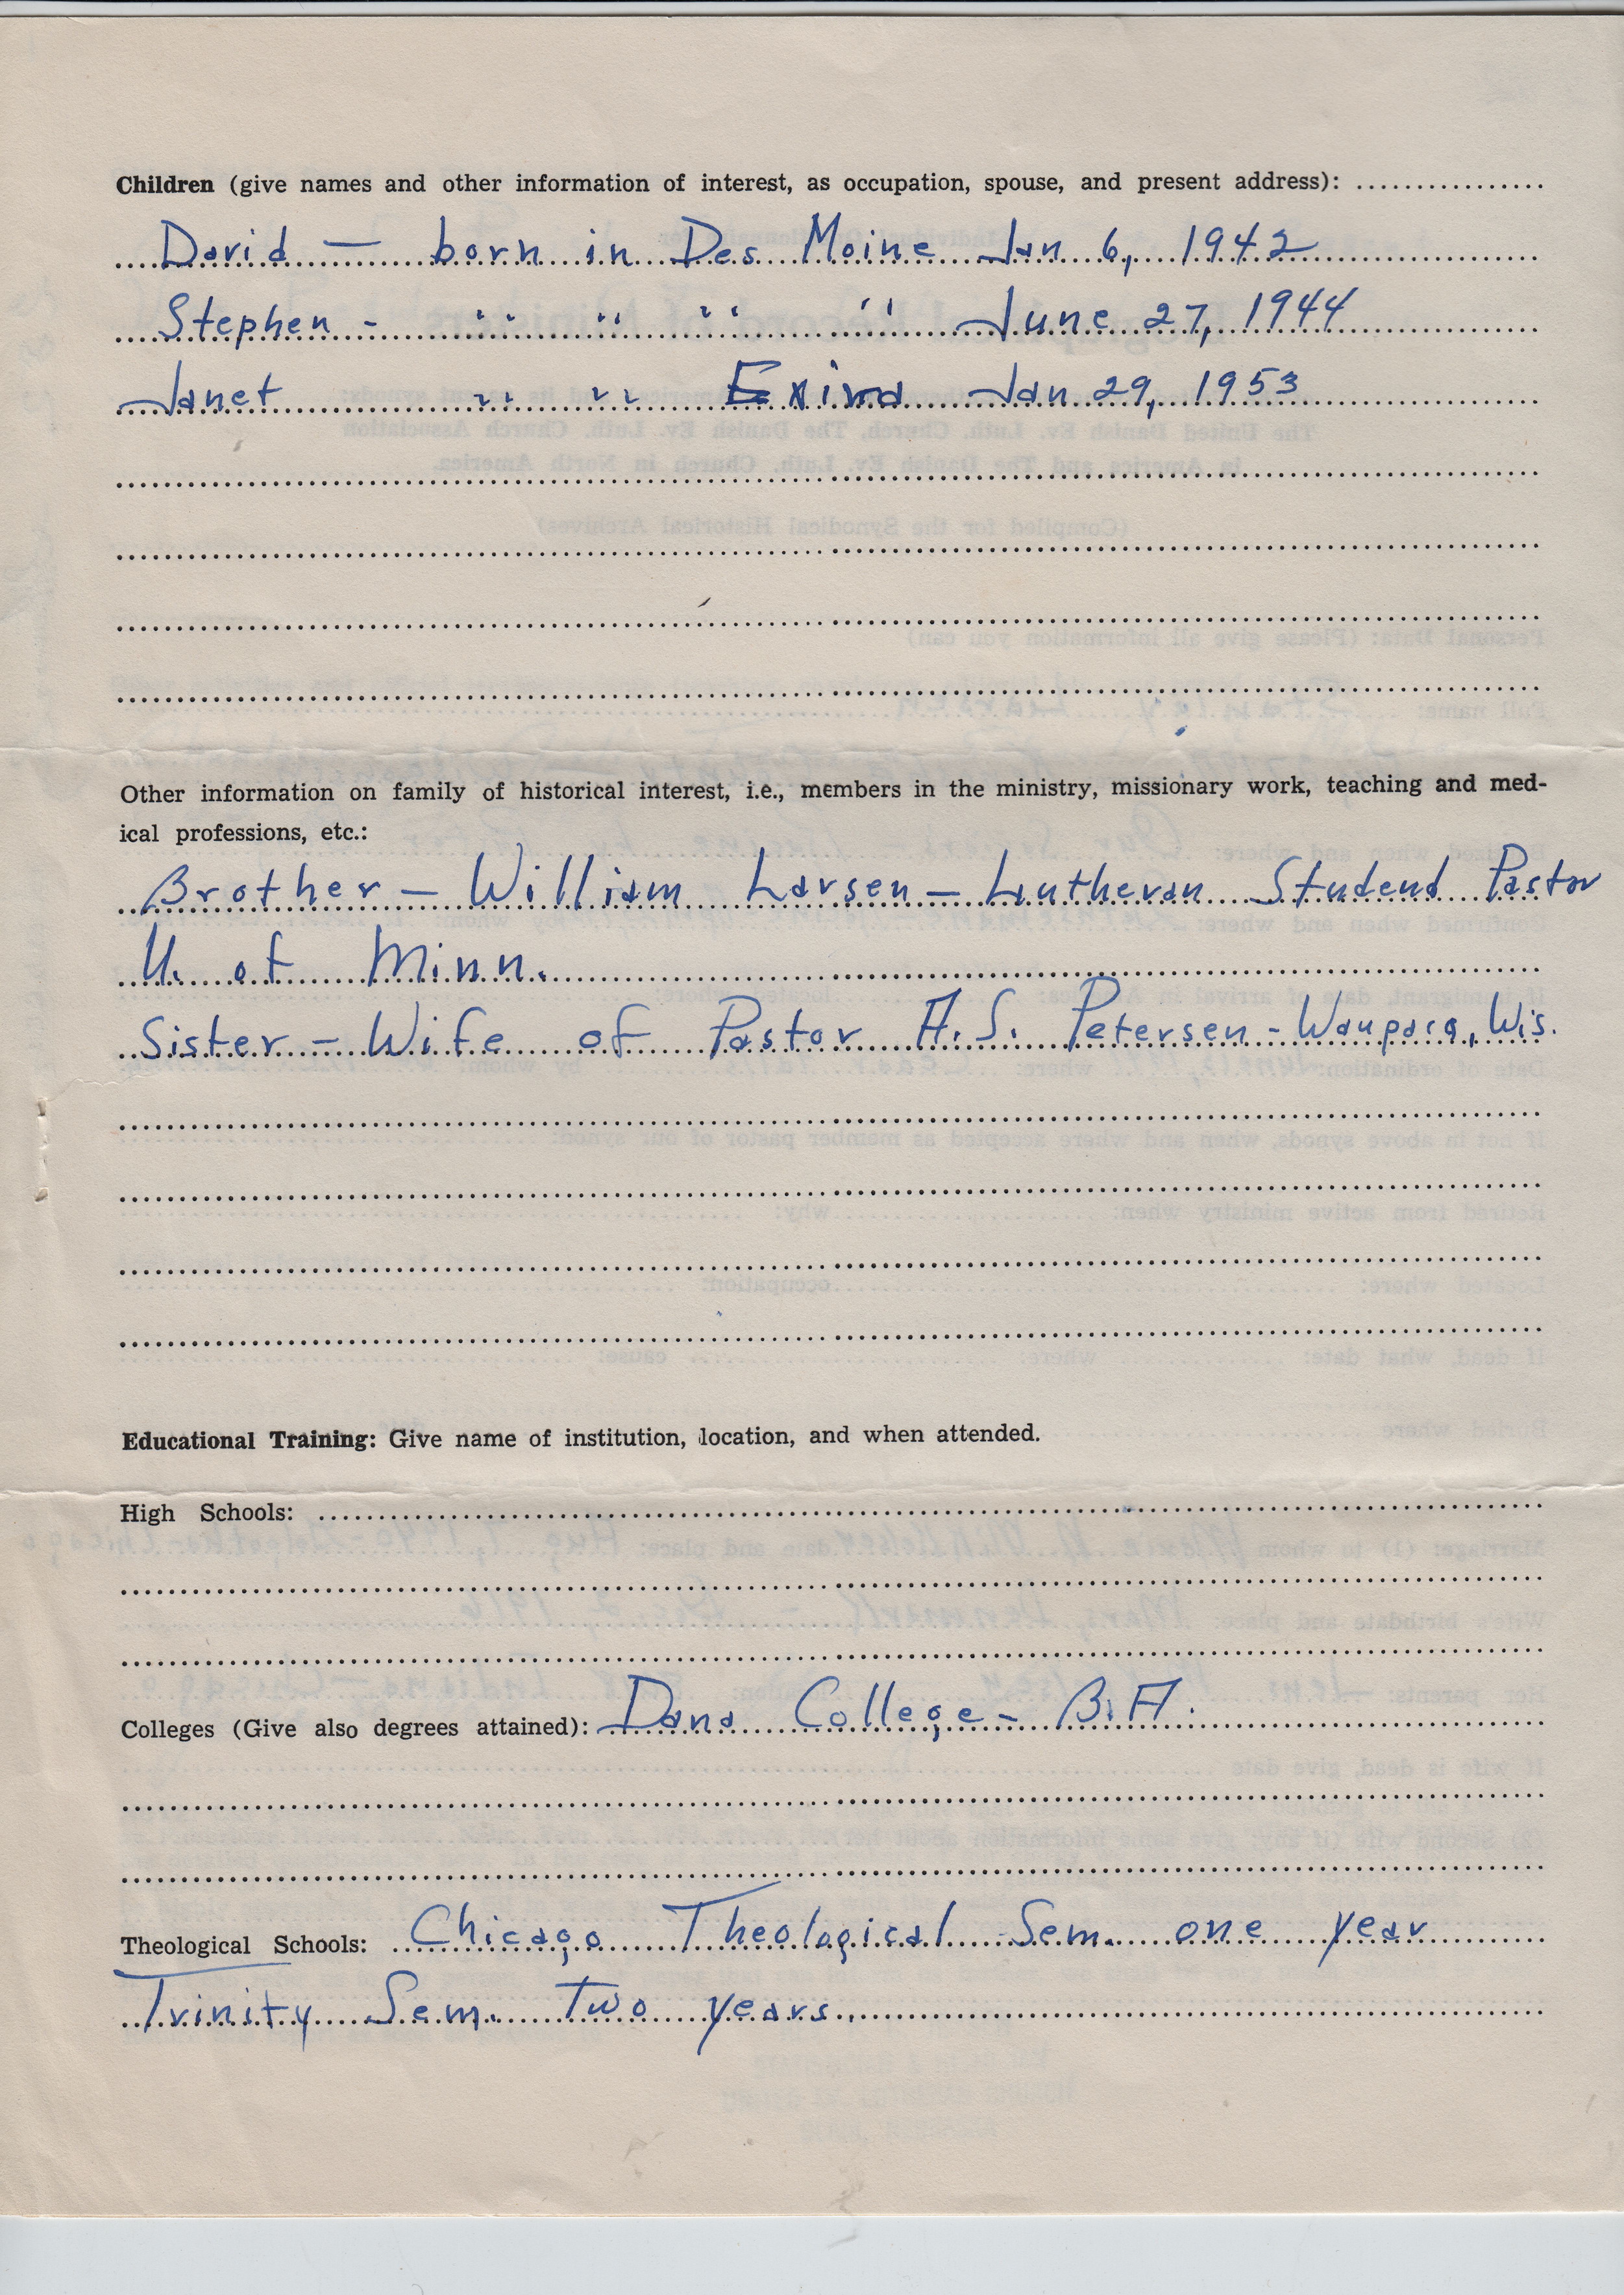 Children (give names and other information of interest, as occupation, spouse, and present address):
David — born in Des Moine Jan 6, 1942
Stephen - " " " " June 27, 1944
Janet " " Exira Jan 29, 1953
Other information on family of historical interest, i.e., members in the ministry, missionary work, teaching and med-
ical professions, etc.:
Brother — William Larsen — Lutheran Studend Pastor
U. of Minn.
Sister — Wife of Pastor A.S. Petersen - Waupaca, Wis.
Educational Training: Give name of institution, location, and when attended.
High Schools:
Colleges (Give also degrees attained): Dana College - B.A.
Theological Schools: Chicago Theological Sem. one year
Trinity Sem. Two years.